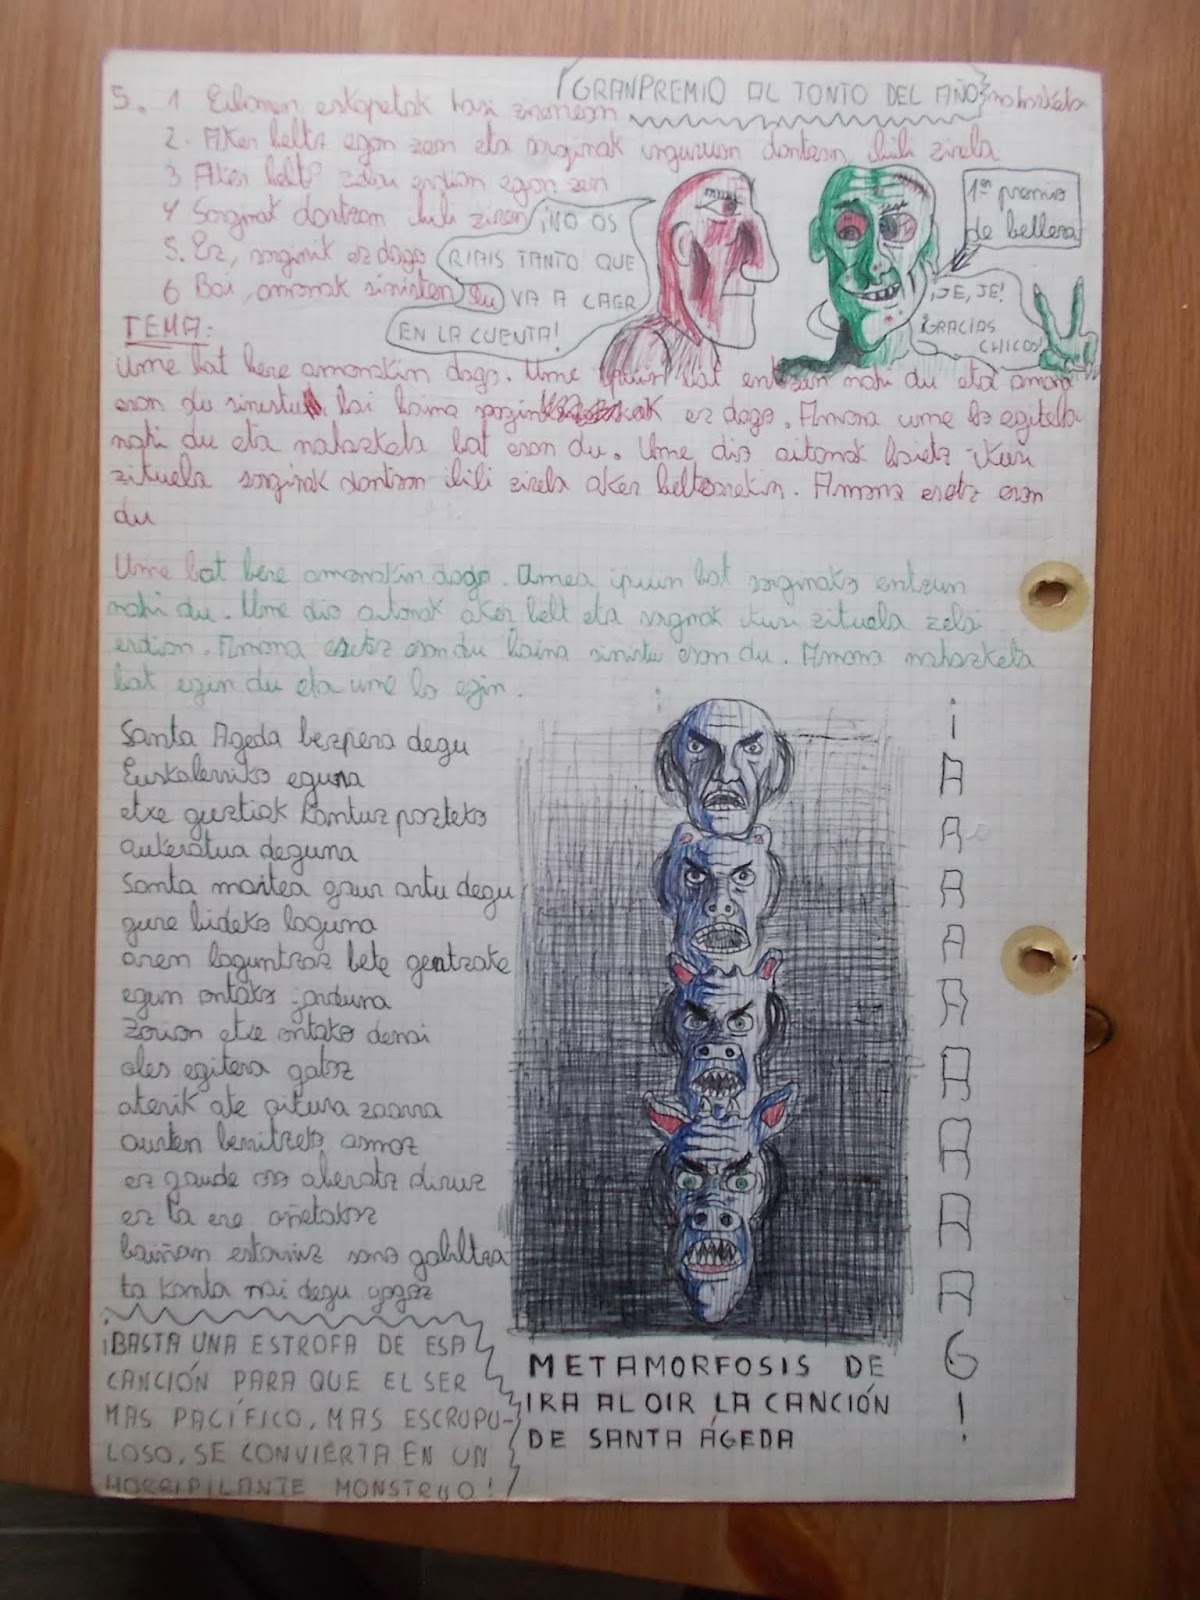 ¡GRAN PREMIO AL TONTO DEL AÑO!
5. 1 estopetak hasi zirenean naharketa
2. Aker beltz egon zen eta sorginak inguruan dantzan ibili zirela
3 Aker beltz zelai erdian egon zen
4 Sorginak dantzan ibili ziren
5. Ez, sorginik ez dago
6 Bai, amonak sinisten du
¡NO OS
RIAIS TANTO QUE
VA A CAER
EN LA CUENTA!
1er premio
de belleza
¡JE, JE!
¡GRACIAS
CHICOS!
TEMA:
Ume bat bere amonakin dago. Ume ipuin bat entzun nahi du eta amona
esan du sinistu bai baina ez dago. Amona ume lo egitela
nahi du eta naharketa bat esan du. Ume dio aitonak baietz ikusi
zituela sorginak dantzan ibili zirela aker beltzarekin. Amona ezetz esan
du
Ume bat bere amonakin dago. Umea ipuin bat sorginako entzun
nahi du. Ume dio aitonak aker belt eta sorginak ikusi zituela zelai
erdian. Amona ezetz esan du baina sinistu esan du. Amona naharketa
bat egin du eta ume lo egin.
Santa Ageda bezpera degu
Euskalerriko eguna
etxe guztiak kantuz pozteko
aukeratua deguna
Santa maitea gaur artu degu
gure bideko laguna
aren laguntzaz bete gentzake
egun ontako jarduna
Zorion etxe ontako denai
oles egitera gatoz
aterik ate oitura zaarra
aurten berritzeko asmoz
ez gaude oso aberatz diruz
ez ta ere oñetakoz
bañan eztarriz sano gabiltza
ta kanta nai degu gogoz
¡BASTA UNA ESTROFA DE ESA
CANCIÓN PARA QUE EL SER
MAS PACÍFICO, MAS ESCRUPU-
LOSO, SE CONVIERTA EN UN
HORRIPILANTE MONSTRUO!
METAMORFOSIS DE
IRA AL OIR LA CANCIÓN
DE SANTA ÁGEDA
¡
A
A
A
A
A
A
A
A
A
G
!